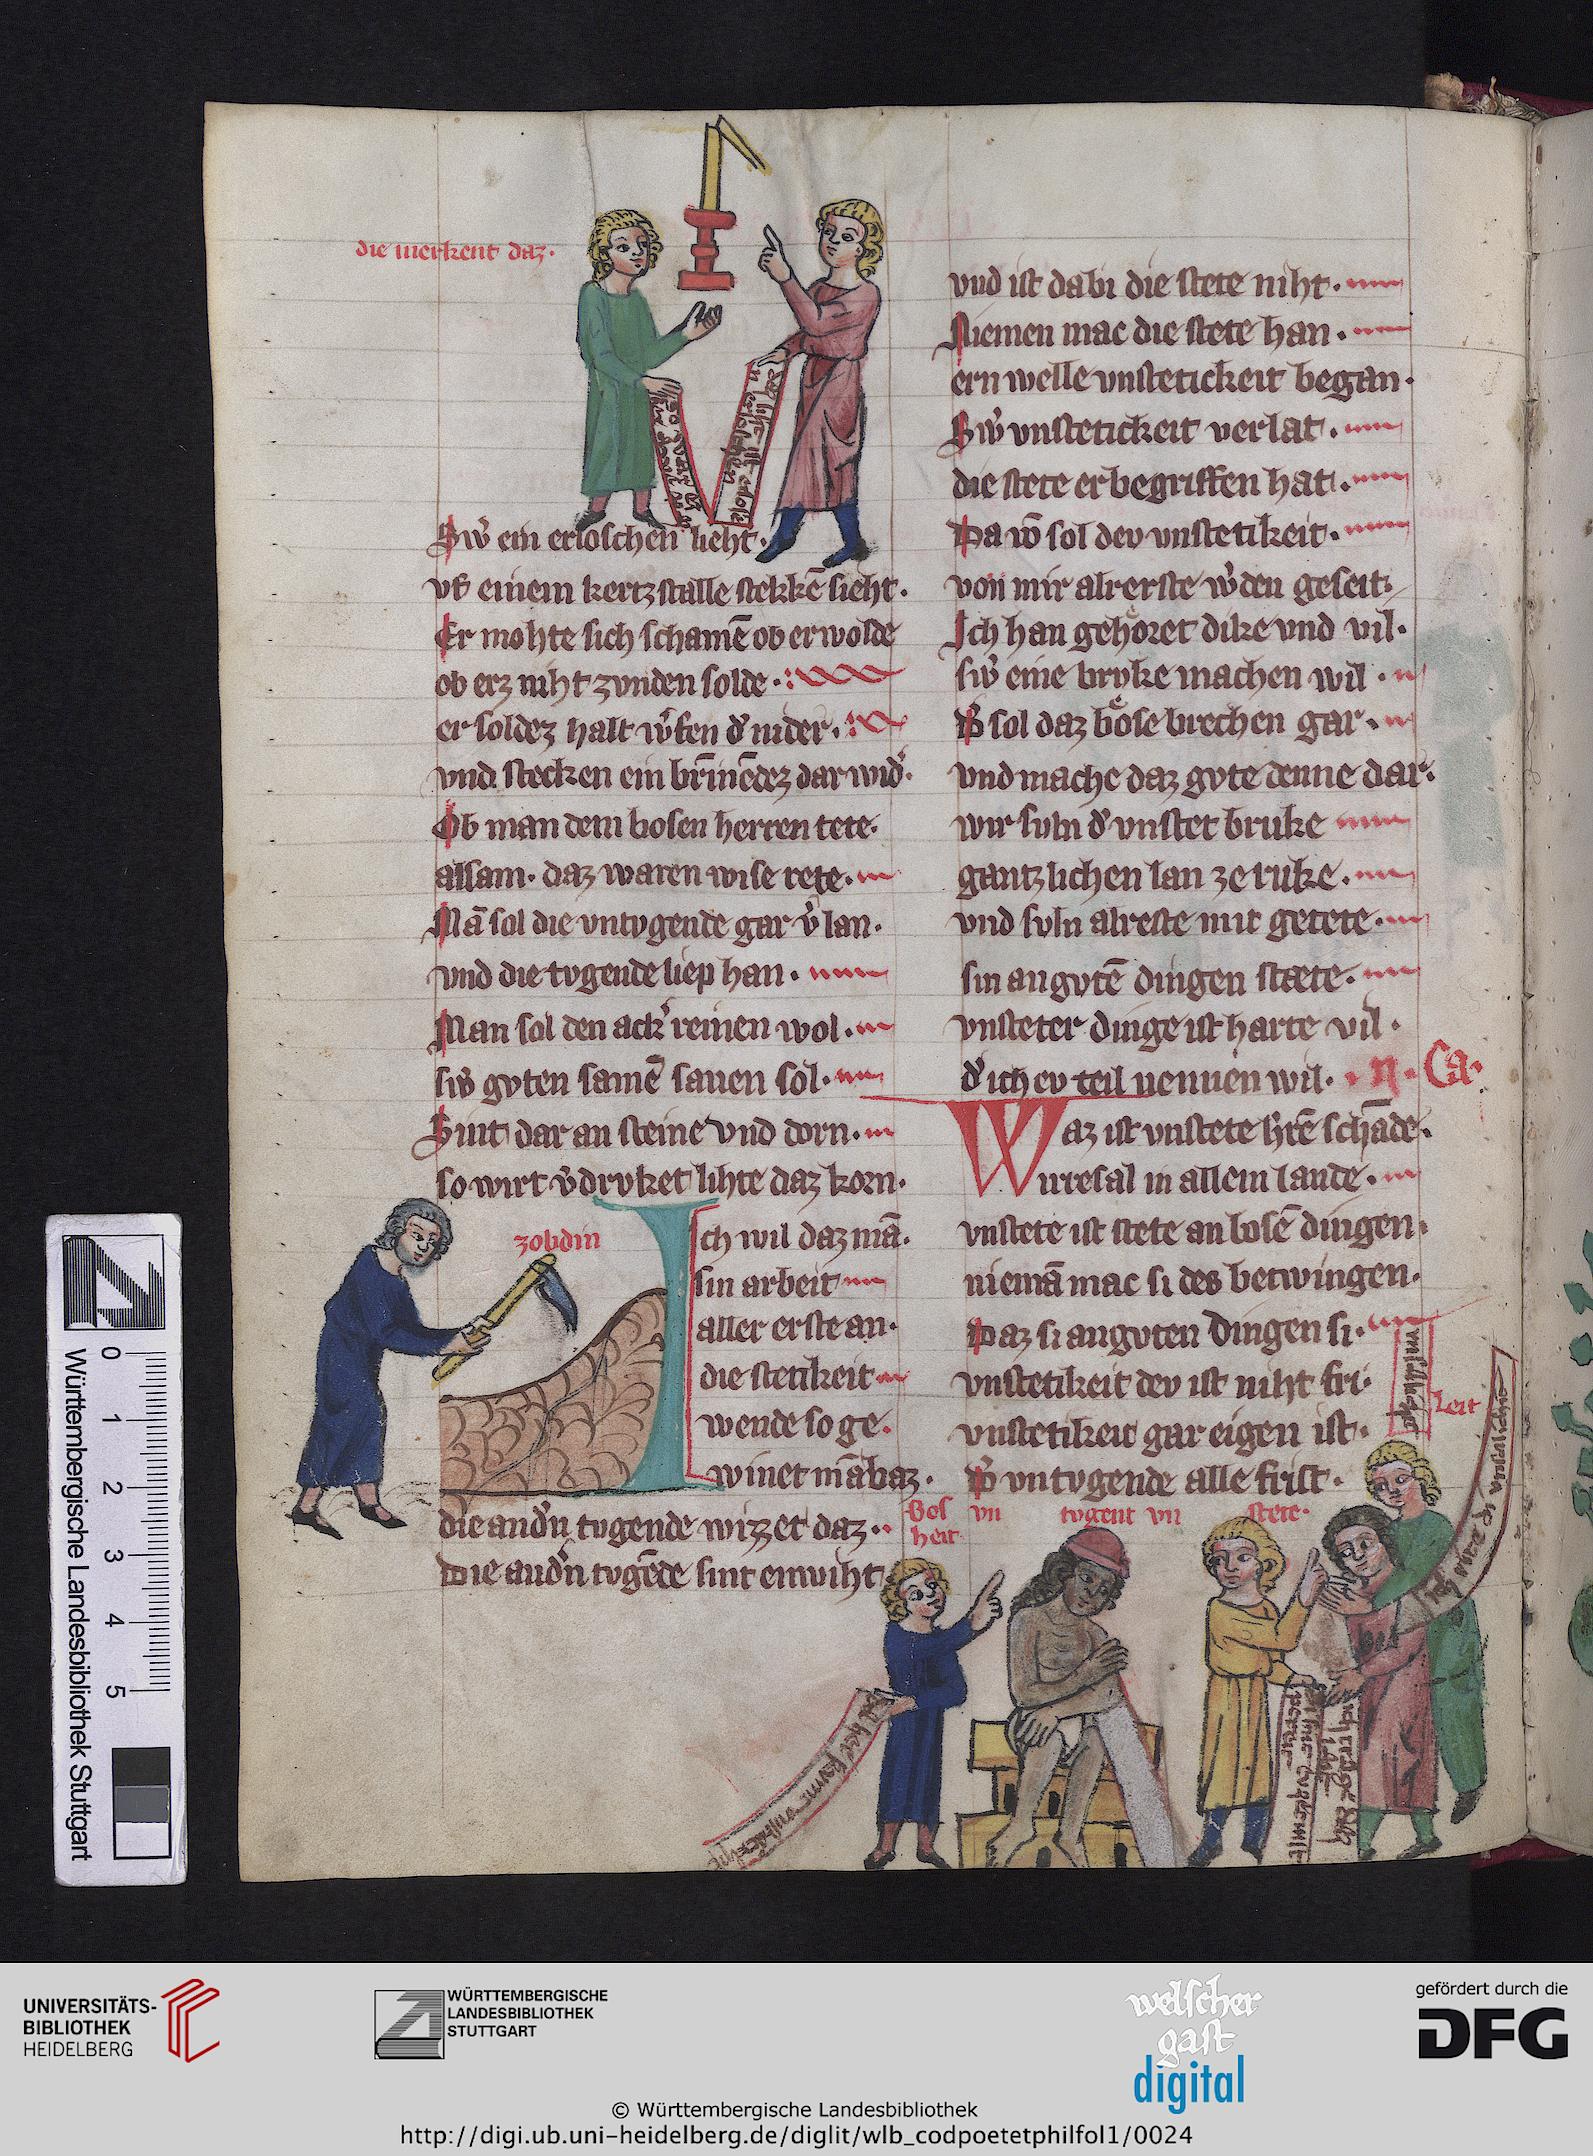 die merkent daz.
Sw̓ ein erloschen lieht.
vf einem kertzstalle stekkē sieht.
Er mohte sich schamē ob er wolde
ob erz niht zvnden solde.
er soldez halt w̓fen d̓ nider.
vnd stecken ein brīnēdez dar wid̓.
Ob man dem bosen herren tete.
alsam. daz waren wise rete.
Mā sol die vntvgende gar v̓lan.
vnd die tvgende liep han.
Man sol den ack̓ reinen wol.
sw̓ gvten samē sauen sol.
Sint dar an steine vnd dorn.
so wirt v̓drvket lihte daz korn.
Ich wil daz mā.
sin arbeit
aller erste an.
die stetikeit
wende so ge.
winet mā baz.
die and̓n tvgende wizzet daz.
Die and̓n tvgēde sint enwiht
vnd ist dabi die stete niht.
Niemen mac die stete han.
ern welle vnstetickeit began.
Sw̓ vnstetickeit verlat.
die stete er begriffen hat.
Da vō sol dev vnstetikeit.
von mir alrerste w̓den geseit.
Ich han gehoͤret dike vnd vil.
sw̓ eine brvke machen wil.
D̓ sol daz boͤse brechen gar.
vnd mache daz gvte denne dar.
wir svln d̓ vnstet bruke
gantzlichen lan ze ruke.
vnd svln alreste mit getete.
sin an gvtē dingen stæte.
vnsteter dinge ist harte vil.
d̓ ich ev teil nennen wil. Ca.
Waz ist vnstete h̓rē schāde.
Wirresal in allem lande.
vnstete ist stete an bosē dingen.
niemā mac si des betwingen.
Daz si an gvten dingen si.
vnstetikeit dev ist niht fri.
vnstetikeit gar eigen ist.
D̓ vntvgende alle frist.
Bos vn tvgent vn stete.
heit
UNIVERSITÄTS-
BIBLIOTHEK
HEIDELBERG
WÜRTTEMBERGISCHE
LANDESBIBLIOTHEK
STUTTGART
welscher
gast
digital
gefördert durch die
DFG
© Württembergische Landesbibliothek
http://digi.ub.uni-heidelberg.de/diglit/wlb_codpoetetphilfol1/0024
Württembergische Landesbibliothek Stuttgart
0 1 2 3 4 5